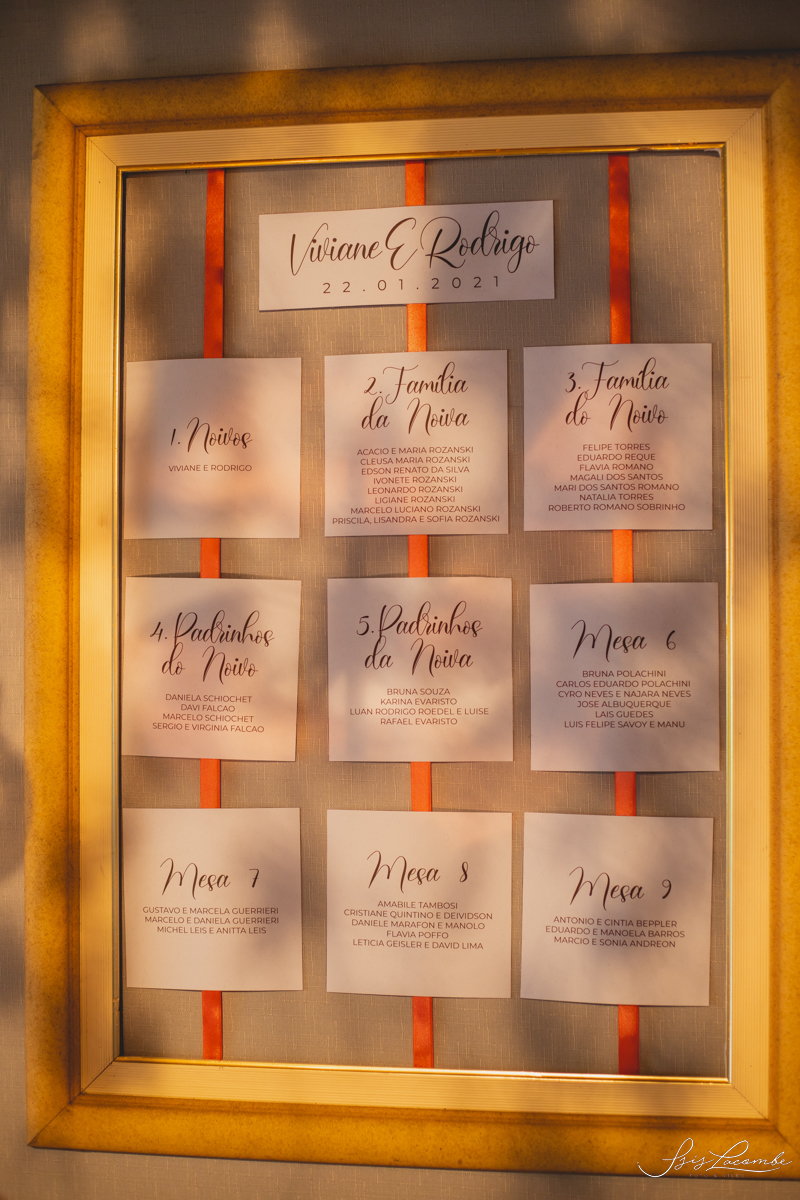 Viviane E Rodrigo
22.01.2021
1. Noivos
VIVIANE E RODRIGO
2. Família
da Noiva
ACACIO E MARIA ROZANSKI
CLEUSA MARIA ROZANSKI
EDSON RENATO DA SILVA
IVONETE ROZANSKI
LEONARDO ROZANSKI
LIGIANE ROZANSKI
MARCELO LUCIANO ROZANSKI
PRISCILA, LISANDRA E SOFIA ROZANSKI
3. Família
do Noivo
FELIPE TORRES
EDUARDO REQUE
FLAVIA ROMANO
MAGALI DOS SANTOS
MARI DOS SANTOS ROMANO
NATALIA TORRES
ROBERTO ROMANO SOBRINHO
4. Padrinhos
do Noivo
DANIELA SCHIOCHET
DAVI FALCAO
MARCELO SCHIOCHET
SERGIO E VIRGINIA FALCAO
5. Padrinhos
da Noiva
BRUNA SOUZA
KARINA EVARISTO
LUAN RODRIGO ROEDEL E LUISE
RAFAEL EVARISTO
Mesa 6
BRUNA POLACHINI
CARLOS EDUARDO POLACHINI
CYRO NEVES E NAJARA NEVES
JOSE ALBUQUERQUE
LAIS GUEDES
LUIS FELIPE SAVOY E MANU
Mesa 7
GUSTAVO E MARCELA GUERRIERI
MARCELO E DANIELA GUERRIERI
MICHEL LEIS E ANITTA LEIS
Mesa 8
AMABILE TAMBOSI
CRISTIANE QUINTINO E DEIVIDSON
DANIELE MARAFON E MANOLO
FLAVIA POFFO
LETICIA GEISLER E DAVID LIMA
Mesa 9
ANTONIO E CINTIA BEPPLER
EDUARDO E MANOELA BARROS
MARCIO E SONIA ANDREON
Isis Lacombe